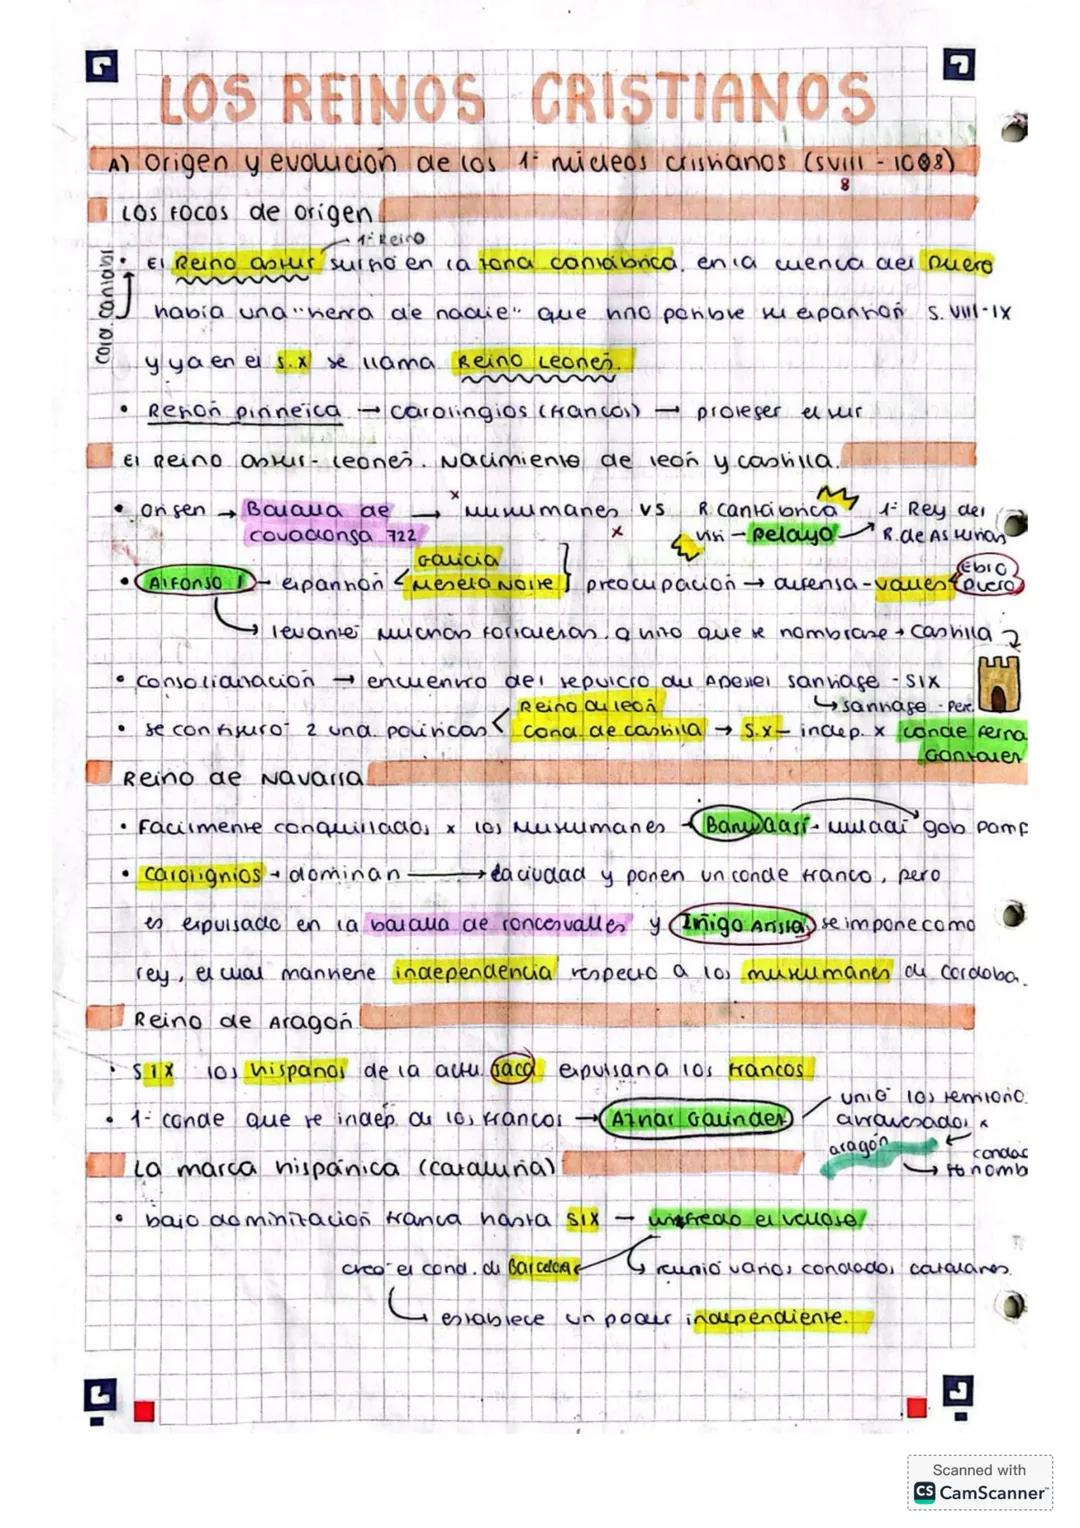 LOS REINOS CRISTIANOS
A) Origen y evolución de los 1º núcleos cristianos (SVIII - 1008)
8
LOS FOCOS de origen
1º Reino
El Reino astur surgió en la zona cantábrica, en la cuenca del Duero
cord. cantábr.
había una "tierra de nadie" que hizo posible su expansión S. VIII-IX
y ya en el S.X se llama Reino Leonés.
Región pirineica → carolingios (francos) → proteger el sur
El Reino astur-leonés. Nacimiento de león y castilla.
origen → Batalla de → Musulmanes vs R. cantábrica 1º Rey del
covadonga 722 visi - Pelayo R. de Asturias
Galicia
Alfonso I - expansión < Meseta Norte } preocupación → defensa - valles Ebro Duero
levante muchas fortalezas, q hizo que se nombrase → Castilla
consolidación → encuentro del sepulcro del Apóstol santiago - SIX
Reino de león ↳ santiago - Per.
se configuró 2 unid. políticas < cond. de castilla → S.X - indep. x conde Ferna
Gonzalez
Reino de Navarra
Facilmente conquistados x los Musulmanes - Banu Qasi - muladí gob Pamp
carolignios → dominan → la ciudad y ponen un conde franco, pero
es expulsado en la batalla de roncesvalles y Iñigo Arista se impone como
rey, el cual mantiene independencia respecto a los musulmanes de cordoba.
Reino de Aragón
SIX los hispanos de la actu. Jaca expulsan a los francos
1º conde que se indep. de los francos → Aznar Galindez unió los territorio.
atravesados x
aragón condad
↳ to nomb
La marca hispánica (cataluña)
bajo dominitación franca hasta SIX - Wifredo el velloso
creó el cond. de Barcelona ↳ reunió varios condados catalanes.
↳ establece un poder independiente.
Scanned with
CS CamScanner